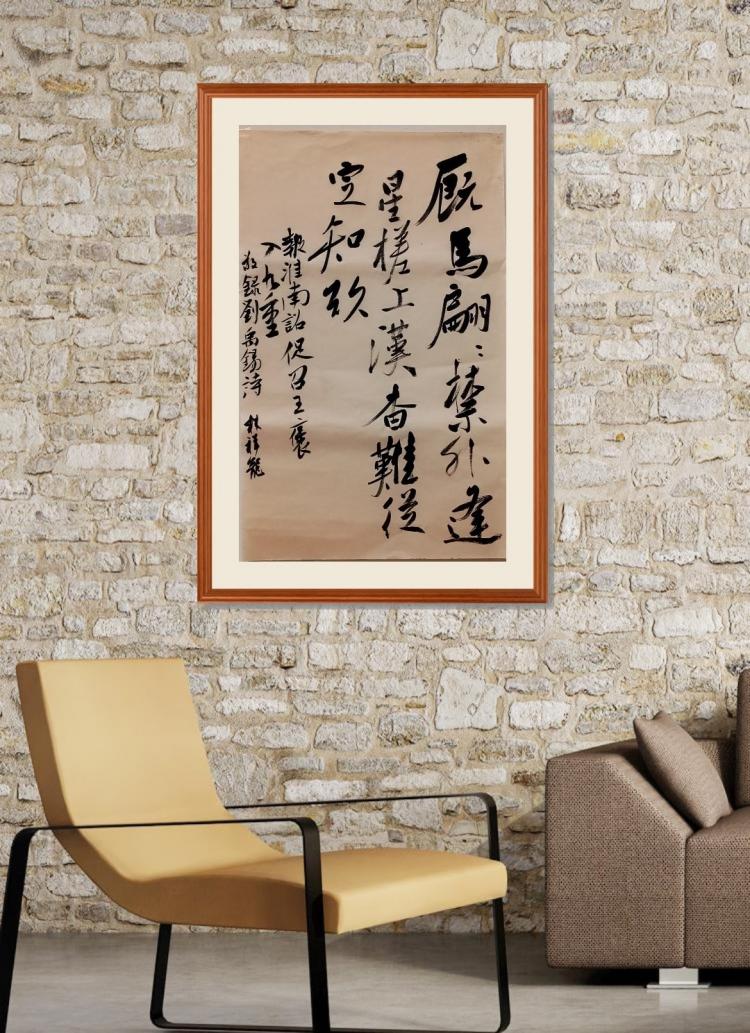 厩馬翩〻禁外逢
星槎上漢杳難從
定知欲
報淮南詔促召王褒
入九重
錄劉禹錫詩